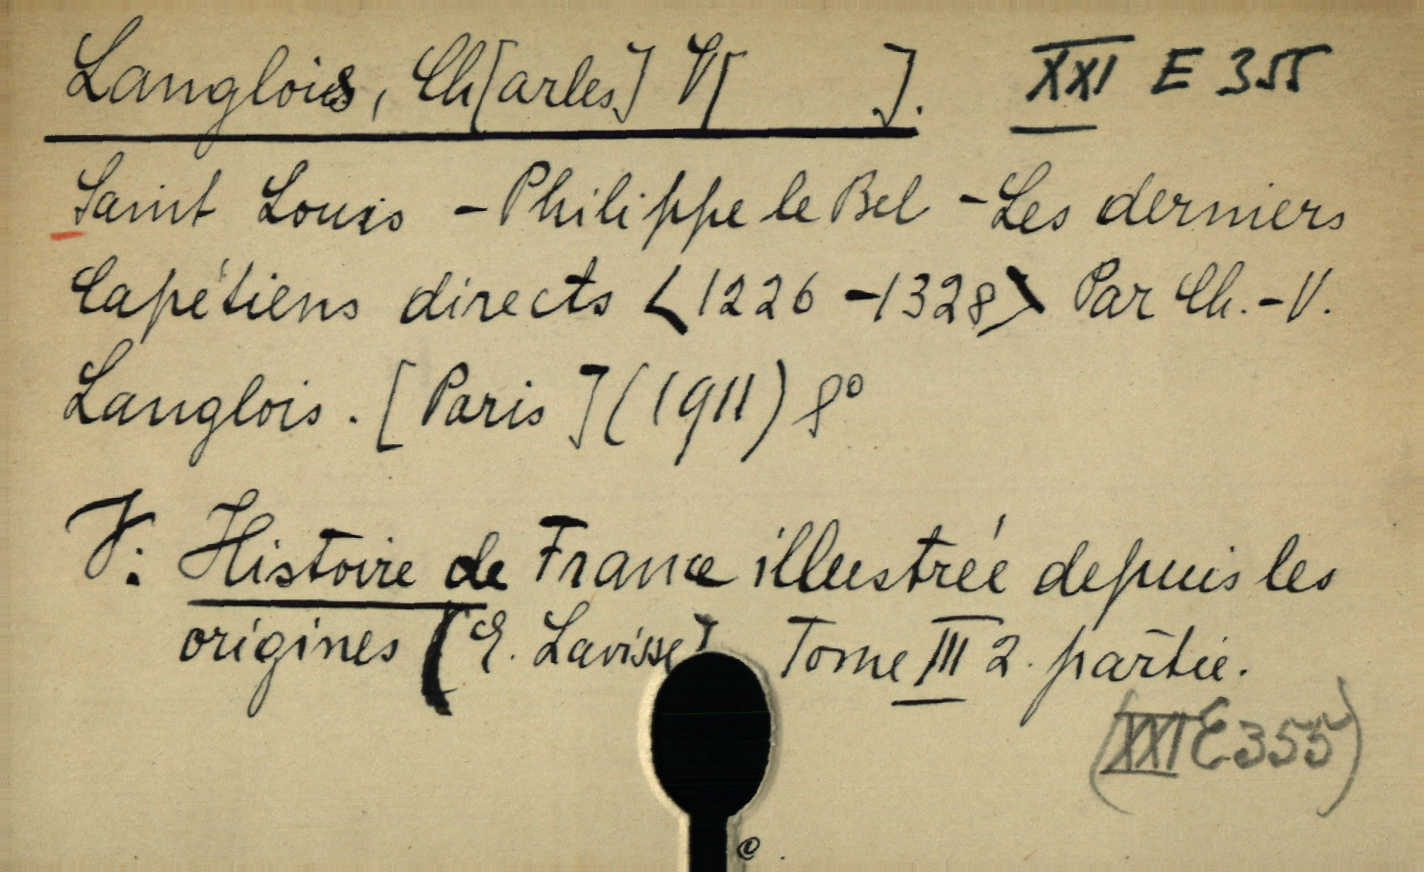 Langlois, Ch[arles] V[ ]. XXI E 355
Saint Louis - Philippe le Bel - Les derniers
Capétiens directs <1226-1328> Par Ch.-V.
Langlois. [Paris] (1911) 8°
V: Histoire de France illustrée depuis les
origines (E. Lavisse) Tome III 2. partie.
(XXI E 355)